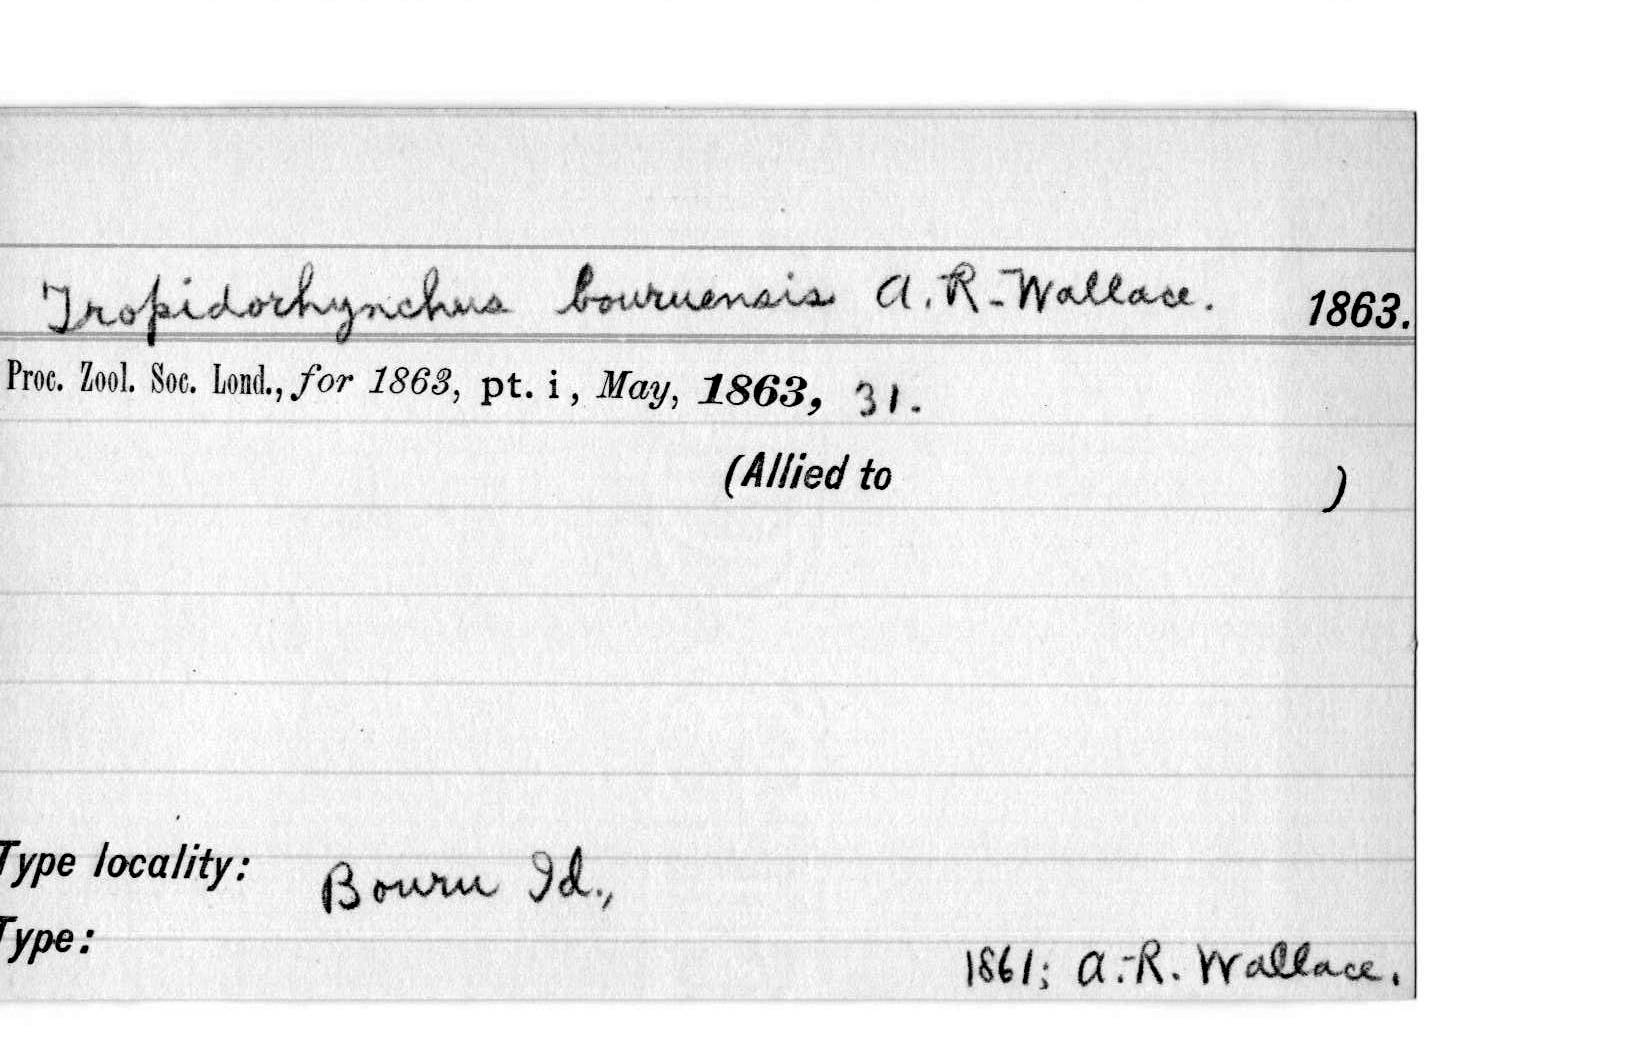 Tropidorhynchus bouruensis A.R. Wallace. 1863.
Proc. Zool. Soc. Lond., for 1863, pt. i, May, 1863, 31.
(Allied to )
Type locality: Bouru Id.,
Type:
1861; A.-R. Wallace.